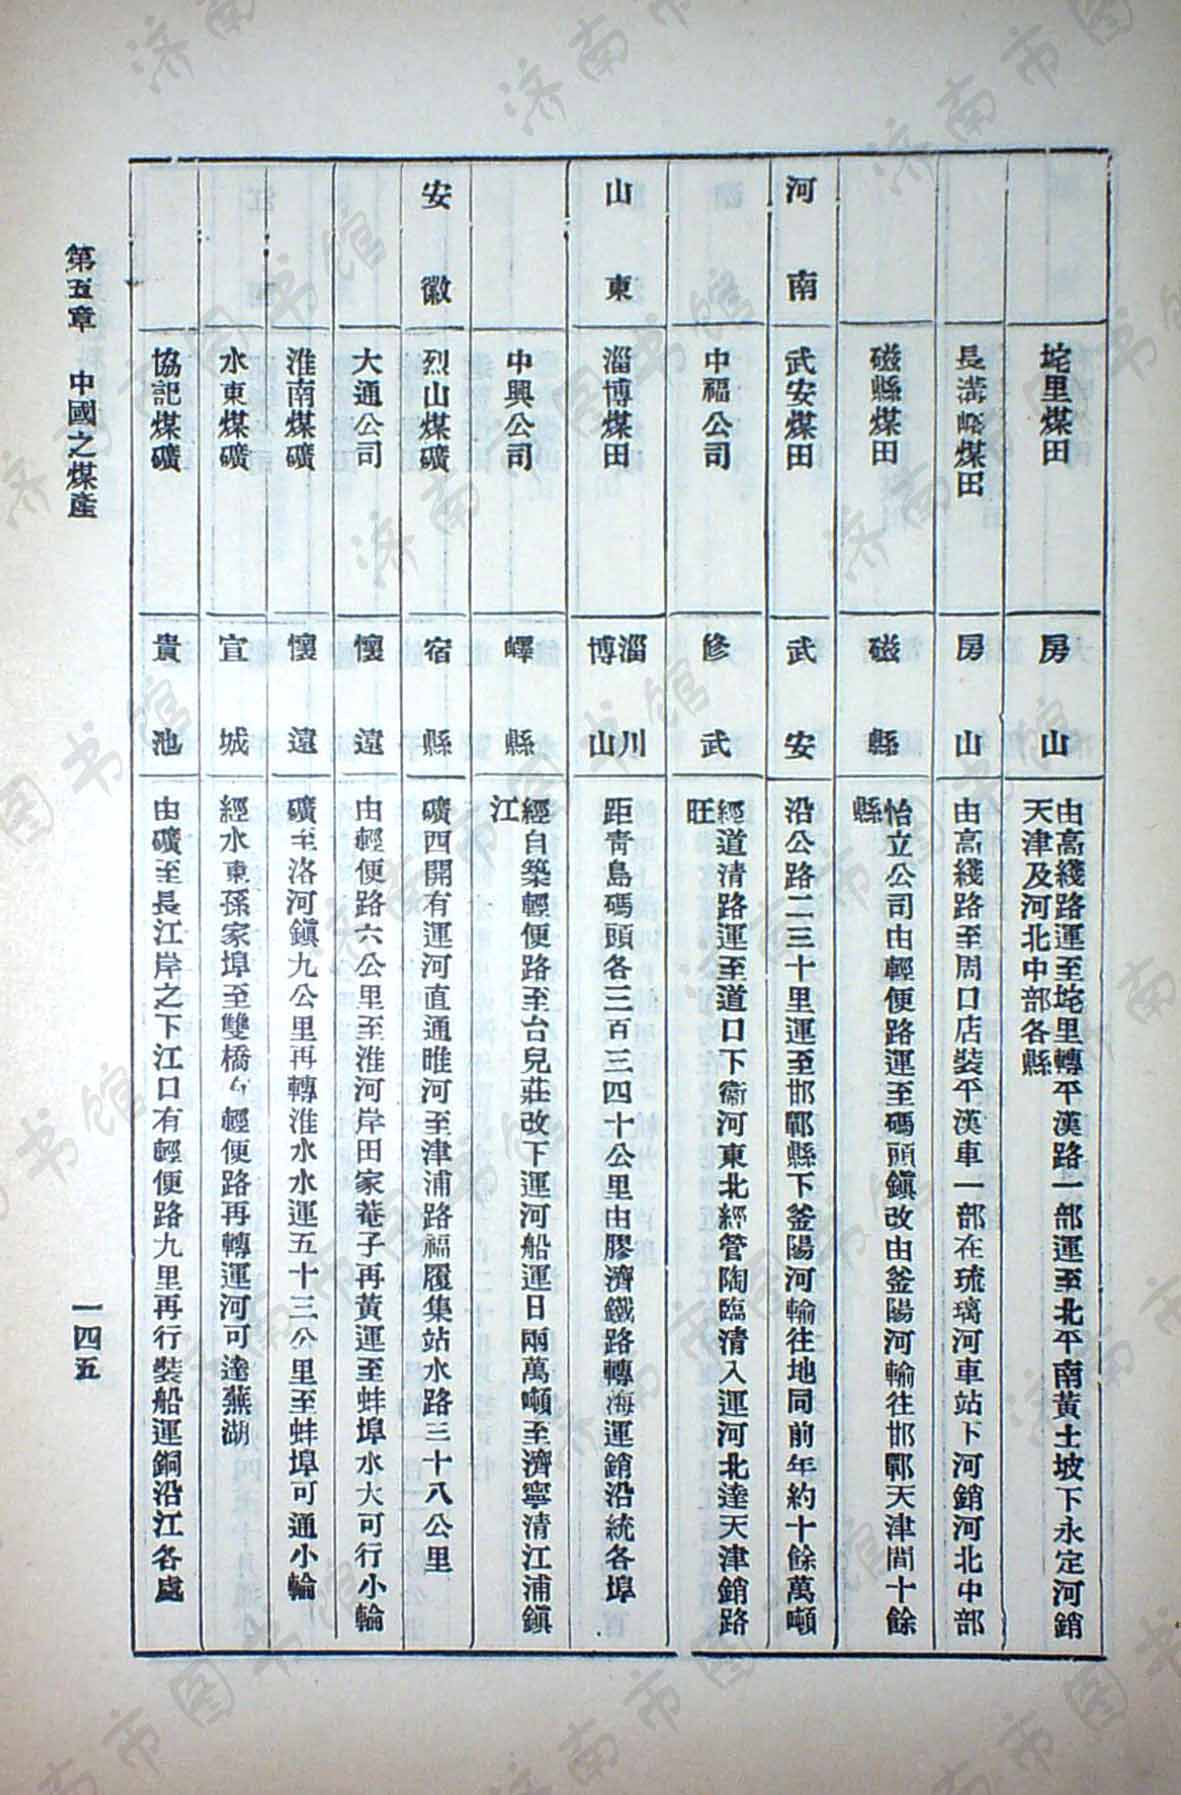 坨里煤田 房山 由高綫路運至坨里轉平漢路一部運至北平南黃土坡下永定河銷
天津及河北中部各縣
長溝峪煤田 房山 由高綫路至周口店裝平漢車一部在琉璃河車站下河銷河北中部
磁縣煤田 磁縣 怡立公司由輕便路運至碼頭鎭改由釜陽河輸往邯鄲天津間十餘
縣
河南 武安煤田 武安 沿公路二三十里運至邯鄲縣下釜陽河輸往地同前年約十餘萬噸
中福公司 修武 經道清路運至道口下衞河東北經管陶臨清入運河北達天津銷路
旺
山東 淄博煤田 淄川 博山 距靑島碼頭各三百三四十公里由膠濟鐵路轉海運銷沿統各埠
中興公司 嶧縣 經自築輕便路至台兒莊改下運河船運日兩萬噸至濟寧清江浦鎭
江
安徽 烈山煤礦 宿縣 礦西開有運河直通睢河至津浦路福履集站水路三十八公里
大通公司 懷遠 由輕便路六公里至淮河岸田家菴子再黃運至蚌埠水大可行小輪
淮南煤礦 懷遠 礦至洛河鎭九公里再轉淮水水運五十三公里至蚌埠可通小輪
水東煤礦 宣城 經水東孫家埠至雙橋輕便路再轉運河可達蕪湖
協記煤礦 貴池 由礦至長江岸之下江口有輕便路九里再行裝船運銅沿江各處
第五章 中國之煤產
一四五